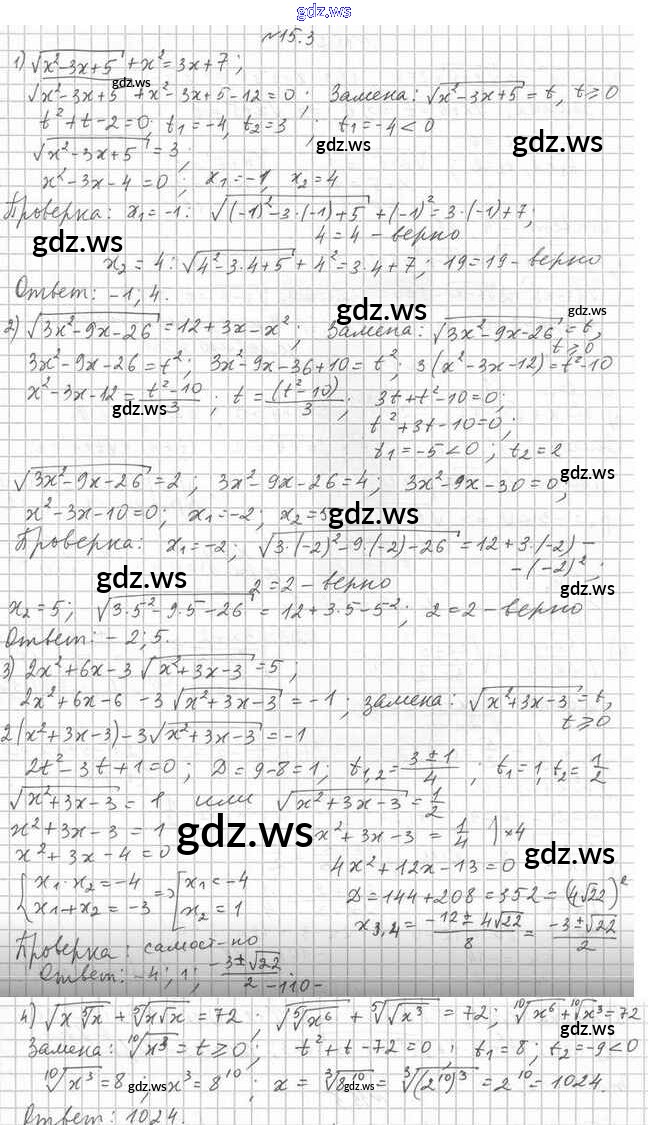 gdz.ws
№15.3
1) √(x²-3x+5) + x² = 3x+7;
√(x²-3x+5) + x²-3x+5-12=0; Замена: √(x²-3x+5) = t, t≥0
gdz.ws
t²+t-2=0; t₁=-4, t₂=3; t₁=-4<0
gdz.ws gdz.ws
√(x²-3x+5) = 3;
x²-3x-4=0; x₁=-1, x₂=4
Проверка: x₁=-1: √((-1)²-3·(-1)+5) + (-1)² = 3·(-1)+7;
4=4 - верно
gdz.ws
x₂=4: √(4²-3·4+5) + 4² = 3·4+7; 19=19 - верно
Ответ: -1; 4.
gdz.ws gdz.ws
2) √(3x²-9x-26) = 12+3x-x²; Замена: √(3x²-9x-26) = t,
t≥0
3x²-9x-26=t²; 3x²-9x-36+10=t²; 3(x²-3x-12)=t²-10
x²-3x-12=(t²-10)/3; t=(t²-10)/3; 3t+t²-10=0;
gdz.ws
t²+3t-10=0;
t₁=-5<0; t₂=2
√(3x²-9x-26) = 2; 3x²-9x-26=4; 3x²-9x-30=0;
gdz.ws
x²-3x-10=0; x₁=-2; x₂=5
gdz.ws
Проверка: x₁=-2; √(3·(-2)²-9·(-2)-26) = 12+3·(-2)-
-(-2)²;
gdz.ws
2=2 - верно
gdz.ws
x₂=5; √(3·5²-9·5-26) = 12+3·5-5²; 2=2 - верно
Ответ: -2; 5.
3) 2x²+6x-3√(x²+3x-3) = 5;
2x²+6x-6-3√(x²+3x-3) = -1; замена: √(x²+3x-3) = t,
t≥0
2(x²+3x-3)-3√(x²+3x-3) = -1
2t²-3t+1=0; D=9-8=1; t₁,₂=(3±1)/4; t₁=1, t₂=1/2
√(x²+3x-3) = 1 или √(x²+3x-3) = 1/2
x²+3x-3=1 x²+3x-3=1/4 |×4
gdz.ws
x²+3x-4=0 4x²+12x-13=0
gdz.ws
{x₁·x₂=-4 => [x₁=-4 D=144+208=352=(4√22)²
{x₁+x₂=-3 [x₂=1 x₃,₄=(-12±4√22)/8=(-3±√22)/2
Проверка: самост-но
Ответ: -4; 1; (-3±√22)/2
-110-
4) √(x⁵√x) + ⁵√(x√x) = 72; √(⁵√x⁶) + ⁵√(√x³) = 72; ¹⁰√x⁶+¹⁰√x³=72
gdz.ws
Замена: ¹⁰√x³ = t≥0; t²+t-72=0; t₁=8; t₂=-9<0
¹⁰√x³=8; x³=8¹⁰; x=³√8¹⁰=³√(2¹⁰)³=2¹⁰=1024.
gdz.ws gdz.ws
Ответ: 1024.